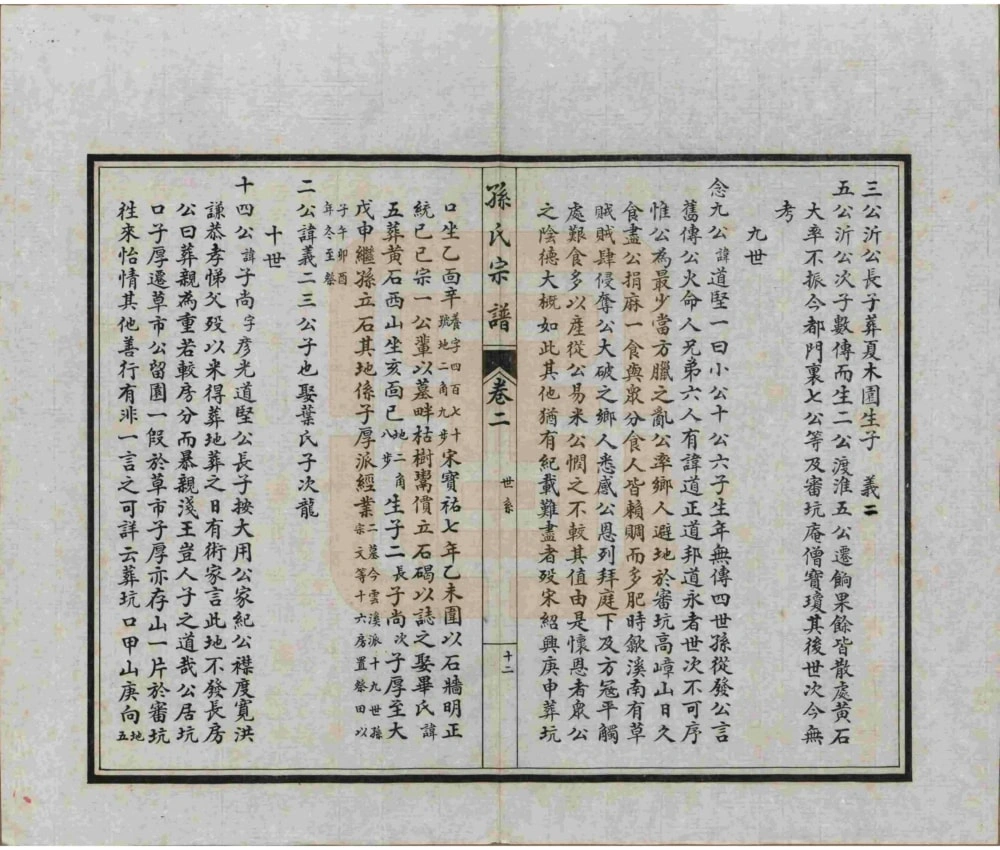 三公沂公長子葬夏木園生子 義二
五公沂公次子數傳而生二公渡淮五公遷餉果餘皆散處黃石
大率不振今都門裏七公等及審坑庵僧寶瓊其後世次今無
考
九世
念九公諱道堅一曰小公十公六子生年無傳四世孫從發公言
舊傳公火命人兄弟六人有諱道正道邦道永者世次不可序
惟公為最少當方臘之亂公率鄉人避地於審坑高嶂山日久
食盡公捐麻一食與眾分食人皆賴賙而多肥時歙溪南有草
賊賊肆侵奪公大破之鄉人悉感公恩列拜庭下及方寇平觸
處艱食多以產從公易米公憫之不較其值由是懷恩者眾公
之陰德大概如此其他猶有紀載難盡者歿宋紹興庚申葬坑
孫氏宗譜 卷二 世系 十二
口坐乙面辛養字四百七十號地二角九步宋寶祐七年乙未圍以石牆明正
統己巳宗一公輩以墓畔枯樹鬻償立石碣以誌之娶畢氏諱
五葬黃石西山坐亥面巳地二角八步生子二長子尚次子厚至大
戊申繼孫立石其地係子厚派經業二墓今雲溪派十九世孫宗文等十六房置祭田以
子午卯酉年冬至祭
二公諱義二三公子也娶葉氏子次龍
十世
十四公諱子尚字彥光道堅公長子按大用公家紀公襟度寬洪
謙恭孝悌父歿以米得葬地葬之日有術家言此地不發長房
公曰葬親為重若較房分而暴親淺王豈人子之道哉公居坑
口子厚遷草市公留園一假於草市子厚亦存山一片於審坑
往來怡情其他善行有非一言之可詳云葬坑口甲山庚向地五